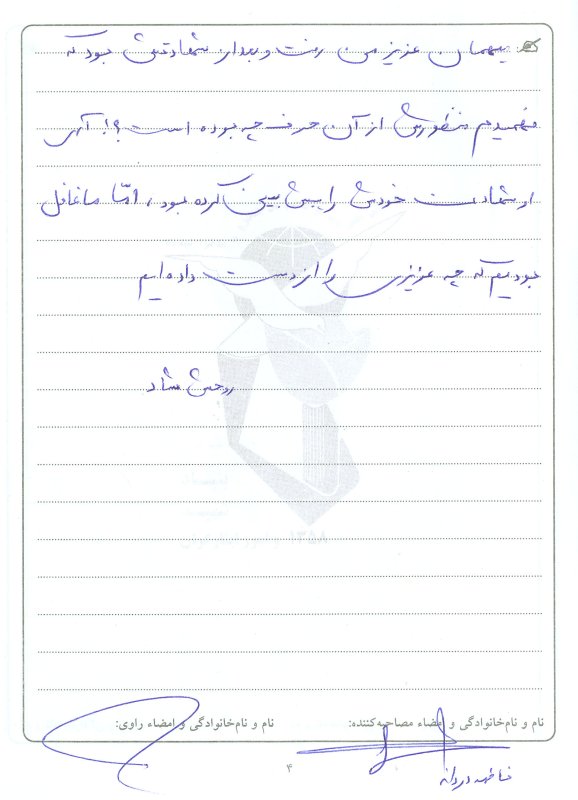 میهمان عزیز من رفت و بعد از شهادتش بود که
فهمیدم منظورش از آن حرف چه بوده است؟! آری
او شهادت خودش را پیش بینی کرده بود، امّا ما غافل
بودیم که چه عزیزی را از دست داده ایم
روحش شاد
نام و نام‌خانوادگی و امضاء مصاحبه‌کننده:
نام و نام‌خانوادگی و امضاء راوی:
فاطمه دردانه
۴